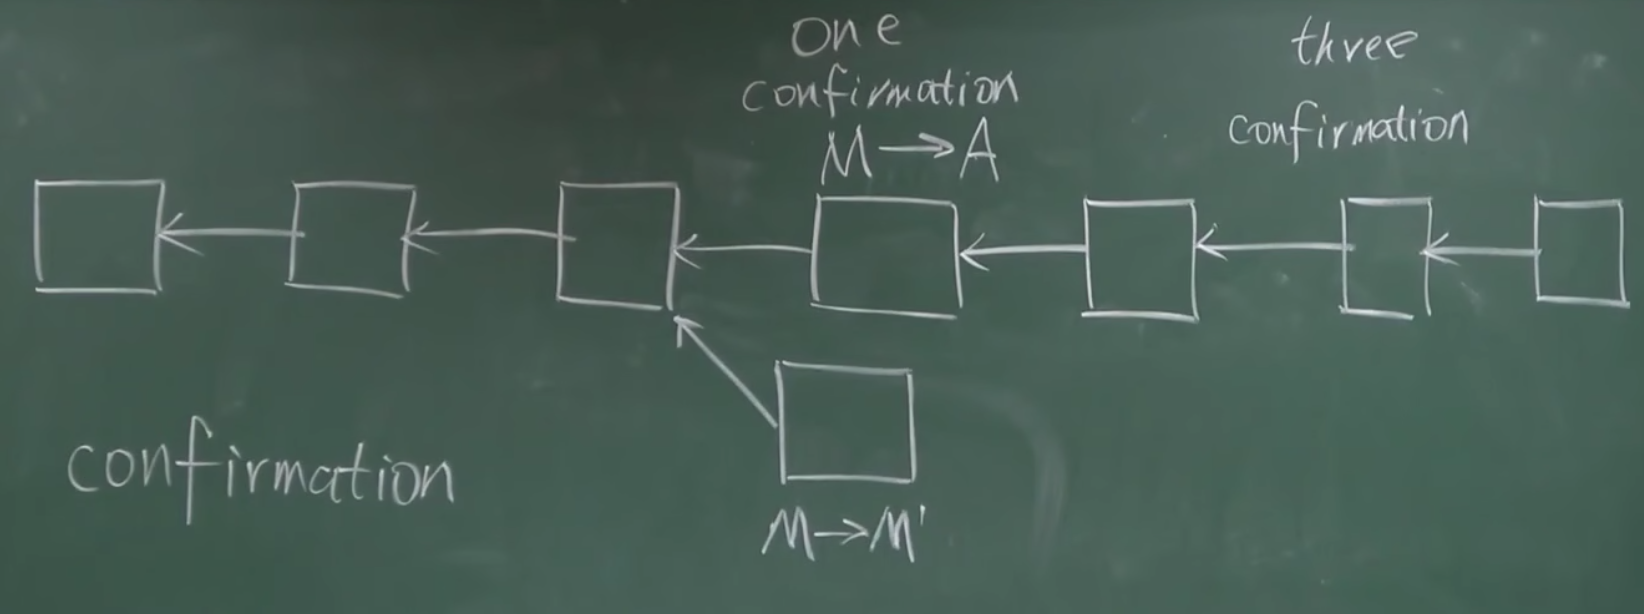 one
confirmation
M→A
three
confirmation
confirmation
M→M'